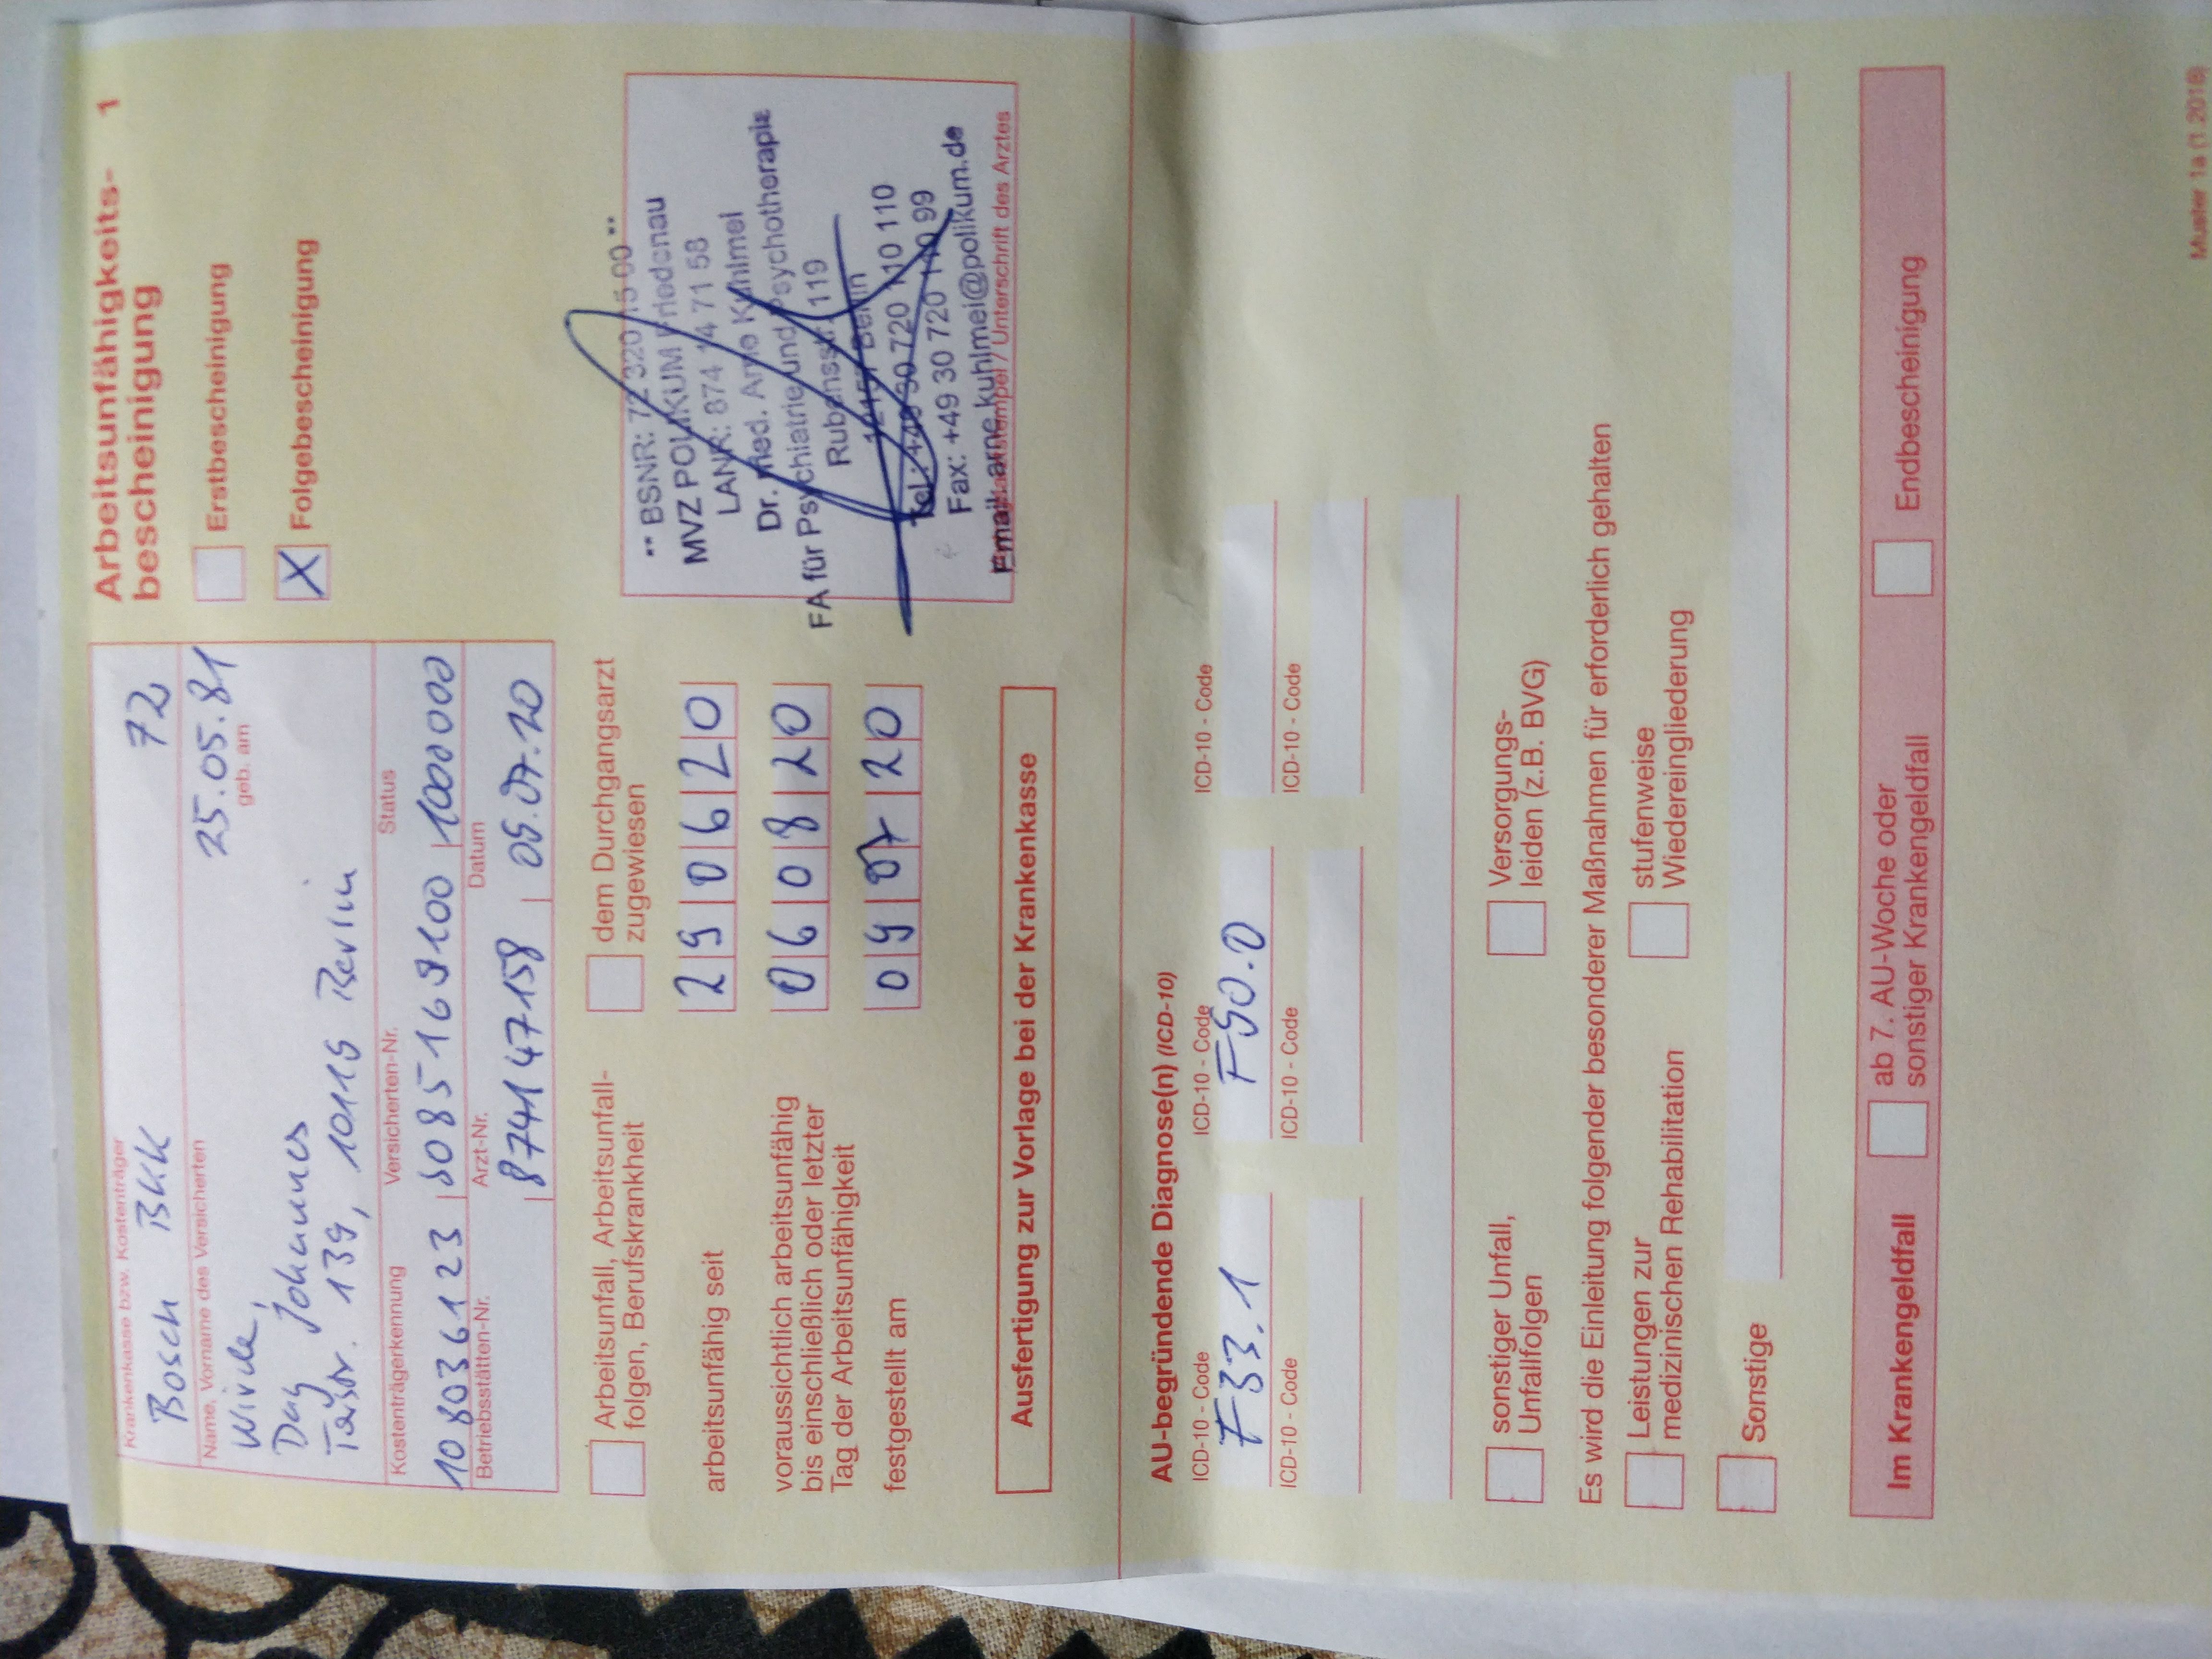 Krankenkasse bzw. Kostenträger
Bosch BKK 72
Name, Vorname des Versicherten
25.05.81
geb. am
Dag Johannes
139, 10119 Berlin
Kostenträgerkennung Versicherten-Nr. Status
108036123 1000000
Betriebsstätten-Nr. Arzt-Nr. Datum
874147158 09.07.20
Arbeitsunfähigkeits- 1
bescheinigung
Erstbescheinigung
X Folgebescheinigung
Arbeitsunfall, Arbeitsunfall-
folgen, Berufskrankheit
dem Durchgangsarzt
zugewiesen
arbeitsunfähig seit 290620
voraussichtlich arbeitsunfähig
bis einschließlich oder letzter 060820
Tag der Arbeitsunfähigkeit
festgestellt am 090720
** BSNR: 72 320 15 00 **
MVZ POLIKUM Friedenau
LANR: 874 14 71 58
Dr. med. Arne Kuhlmei
FA für Psychiatrie und Psychotherapie
Rubensstr. 119
12157 Berlin
Tel.: +49 30 720 110 110
Fax: +49 30 720 110 99
Email: arne.kuhlmei@polikum.de
/ Unterschrift des Arztes
Ausfertigung zur Vorlage bei der Krankenkasse
AU-begründende Diagnose(n) (ICD-10)
ICD-10 - Code ICD-10 - Code ICD-10 - Code
F33.1 F50.0
ICD-10 - Code ICD-10 - Code ICD-10 - Code
sonstiger Unfall,
Unfallfolgen
Versorgungs-
leiden (z.B. BVG)
Es wird die Einleitung folgender besonderer Maßnahmen für erforderlich gehalten
Leistungen zur
medizinischen Rehabilitation
stufenweise
Wiedereingliederung
Sonstige
Im Krankengeldfall
ab 7. AU-Woche oder
sonstiger Krankengeldfall
Endbescheinigung
Muster 1a (1.2018)